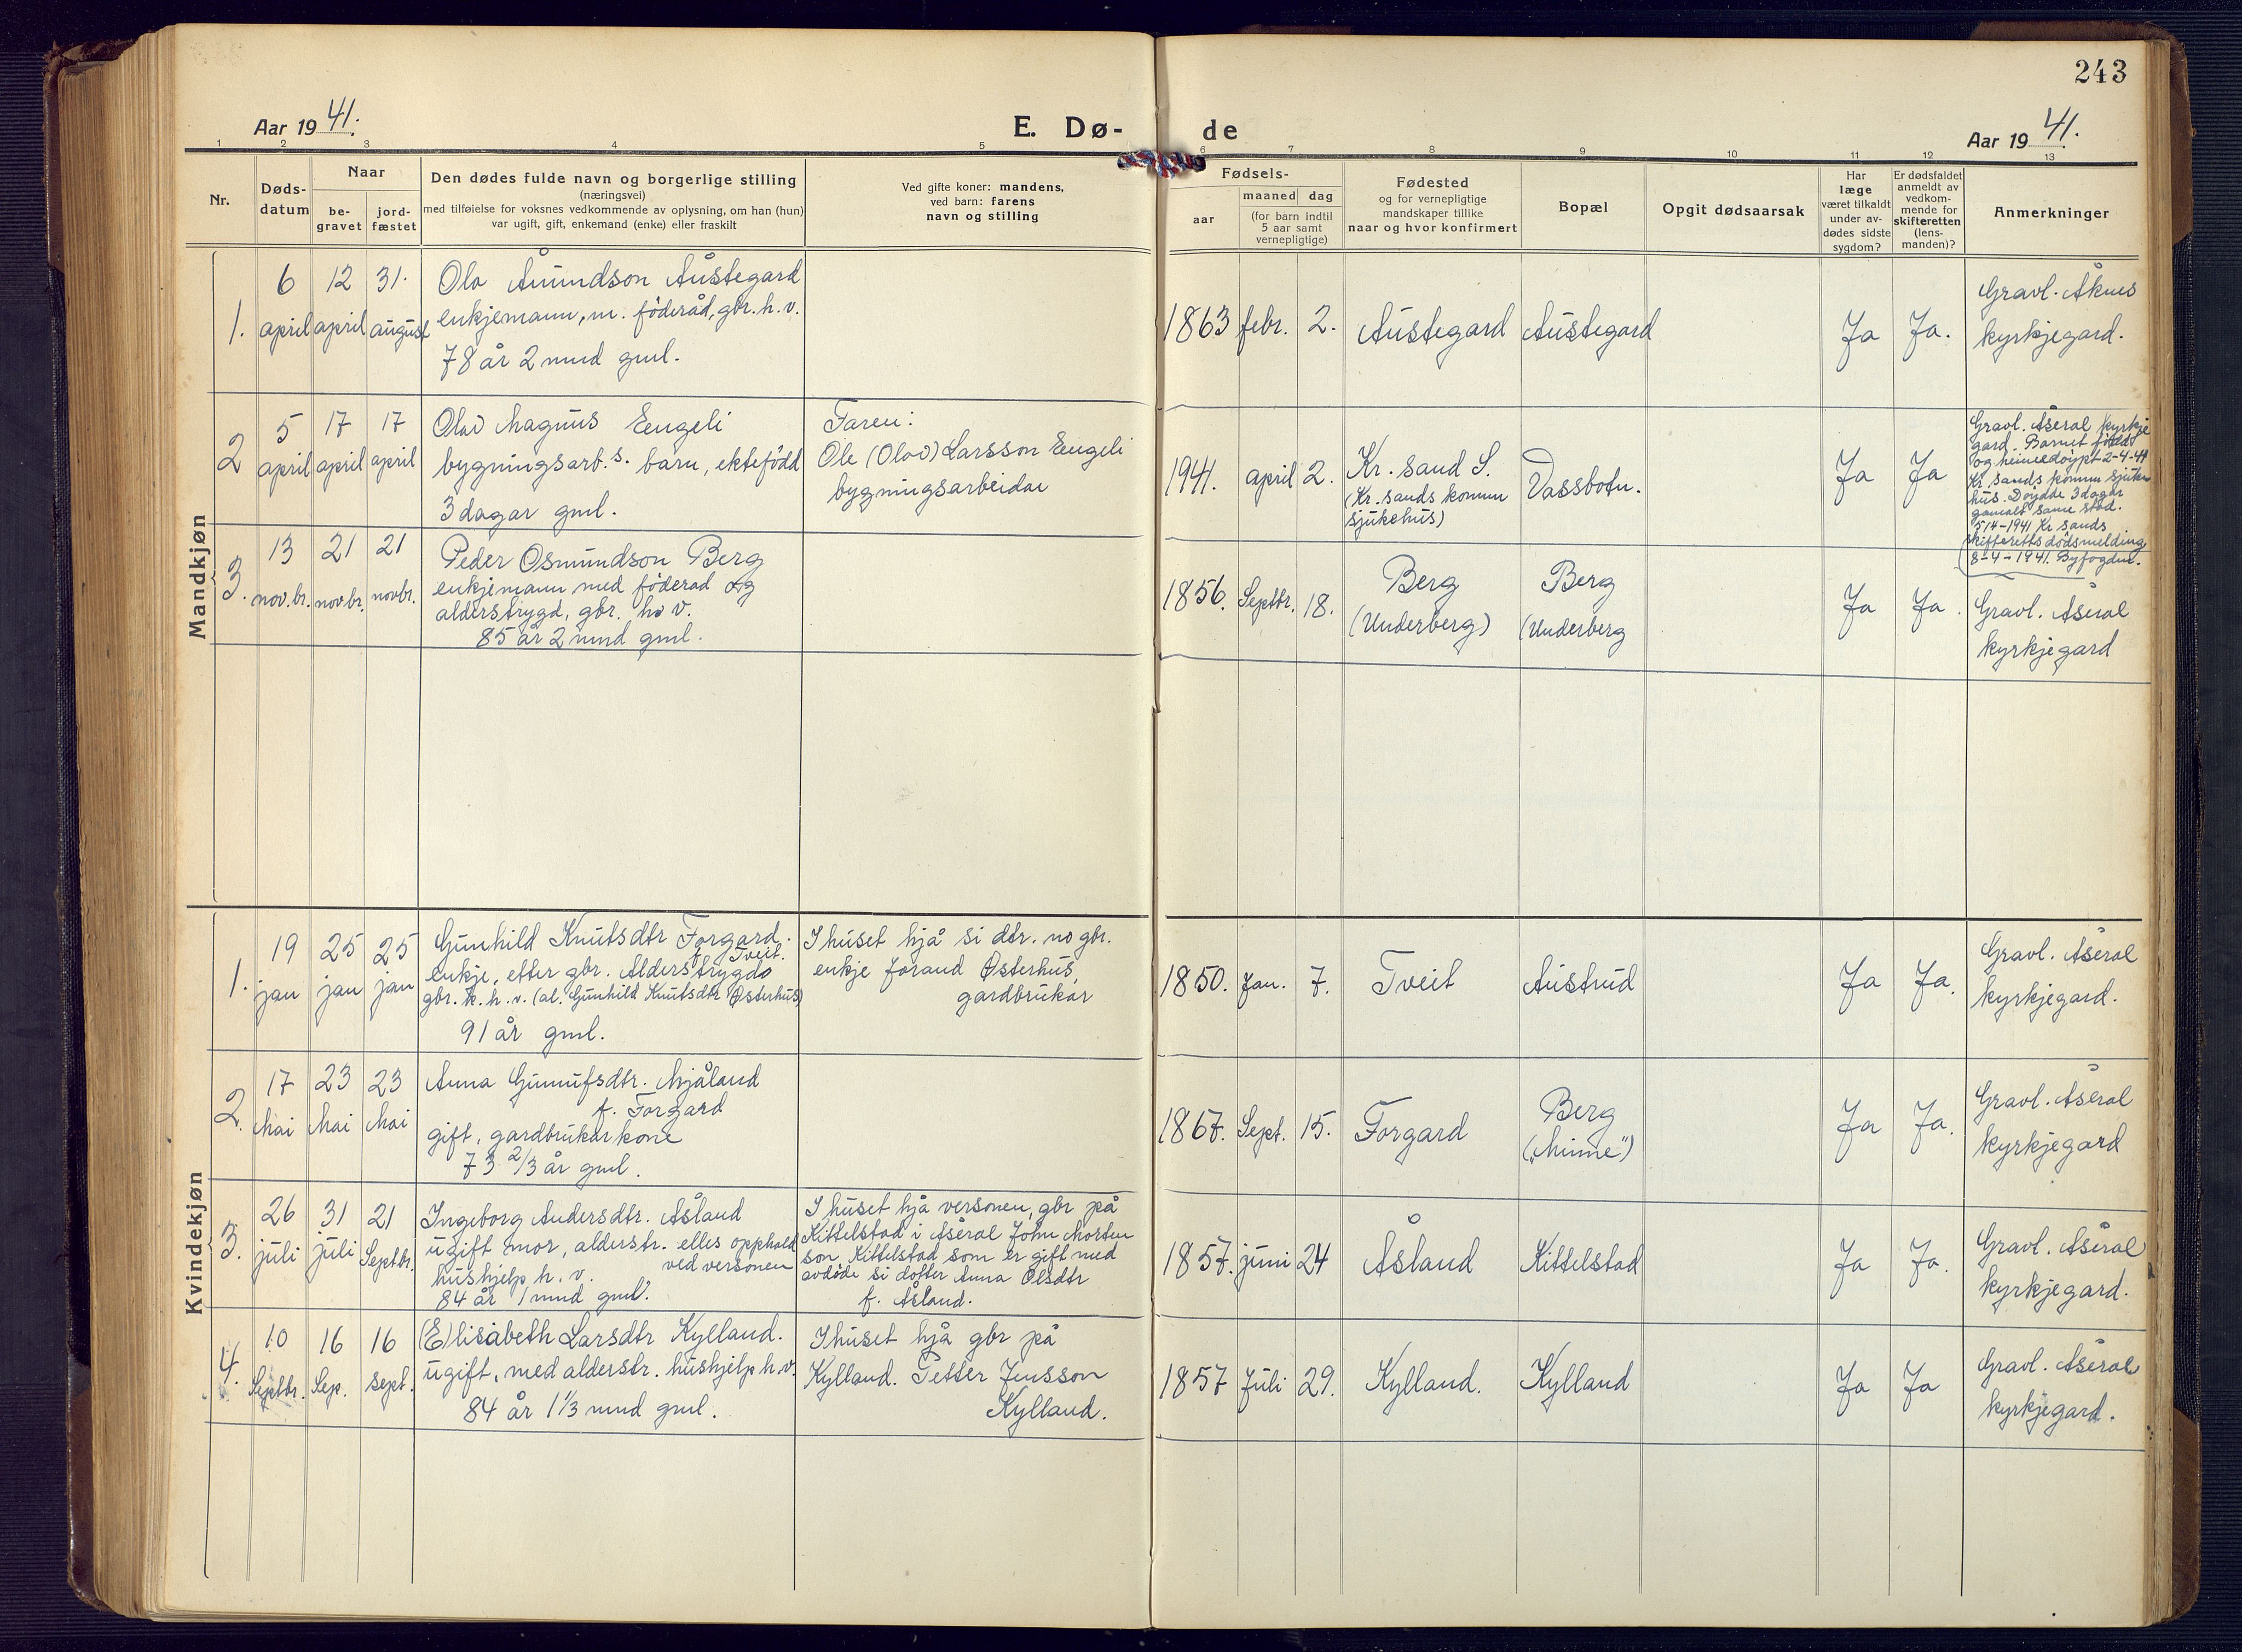 243
Aar 1941.
E. Dø-
de
Aar 1941.
1 2 3 4 5 6 7 8 9 10 11 12 13
Nr.
Døds-
datum
Naar
be-
gravet
jord-
fæstet
Den dødes fulde navn og borgerlige stilling
(næringsvei)
med tilføielse for voksnes vedkommende av oplysning, om han (hun)
var ugift, gift, enkemand (enke) eller fraskilt
Ved gifte koner: mandens,
ved barn: farens
navn og stilling
Fødsels-
aar
maaned dag
(for barn indtil
5 aar samt
vernepligtige)
Fødested
og for vernepligtige
mandskaper tillike
naar og hvor konfirmert
Bopæl
Opgit dødsaarsak
Har
læge
været tilkaldt
under av-
dødes sidste
sygdom?
Er dødsfaldet
anmeldt av
vedkom-
mende for
skifteretten
(lens-
manden)?
Anmerkninger
Mandkjøn
1.
6
april
12
april
31.
august
Olav Åmundson Austegard
enkjemann, m. föderåd, gbr. h. v.
78 år 2 mnd gml.
1863 febr. 2.
Austegard
Austegard
Ja
Ja.
Gravl. Åknes
kyrkjegard.
2
5
april
17
april
17
april
Olav Magnus Eengeli
bygningsarb.s. barn, ektefödd
3 dagar gml.
Faren:
Ole (Olav) Larsson Eengeli
bygningsarbeidar
1941. april 2.
Kr. sand S.
(Kr. sands komm
sjukehus)
Vassbotn.
Ja
Ja
Gravl. Åseral kyrkje
gard. Barnet född
og heimedöypt 2-4-41
Kr. sands komm sjuke
hus. Döydde 3 dagar
gamalt same stad.
5/4-1941 Kr. sands
skifteretts dödsmelding
8-4-1941. Byfogden.
3.
13
nov.br.
21
novbr.
21
novbr.
Peder Osmundson Berg
enkjemann med föderad og
alderstrygd, gbr. h. v.
85 år 2 mnd gml.
1856. Septbr. 18.
Berg
(Underberg)
Berg
(Underberg
Ja
Ja.
Gravl. Åseral
kyrkjegard
Kvindekjøn
1.
19
jan
25
jan
25
jan
Gunhild Knutsdtr Forgard.
f. Tveit.
enkje, efter gbr. Alderstrygda
gbr. k. h. v. (al. Gunhild Knutsdtr Østerhus)
91 år gml.
I huset hjå si dtr. no gbr.
enkje Jorand Østerhus,
gardbrukar
1850. Jan. 7.
Tveit
Austrud
Ja
Ja.
Gravl. Åseral
kyrkjegard.
2.
17
Mai
23
Mai
23
Mai
Anna Gunnufsdtr. Mjåland
f. Forgard
gift, gardbrukarkone
73 2/3 år gml.
1867. Sept. 15.
Forgard
Berg
("Minne")
Ja
Ja.
Gravl. Åseral
kyrkjegard
3.
26
juli
31
juli
21
Septbr.
Ingeborg Andersdtr. Åsland
ugift mor, alderstr. elles opphald
ved versonen
hushjelp h. v.
84 år 1 mnd gml.
I huset hjå versonen, gbr på
Kittelstad i Åseral John Morten
son Kittelstad som er gift med
avdöde si dotter Anna Olsdtr
f. Åsland.
1857. juni 24
Åsland
Kittelstad
Ja
Ja.
Gravl. Åseral
kyrkjegard.
4.
10
Septbr.
16
Sep.
16
sept.
(E)lisabeth Larsdtr Kylland.
ugift, med alderstr. hushjelp h.v.
84 år 1 1/3 mnd gml.
I huset hjå gbr på
Kylland. Petter Jensson
Kylland.
1857 Juli 29.
Kylland.
Kylland
Ja
Ja
Gravl. Åseral
kyrkjegard.